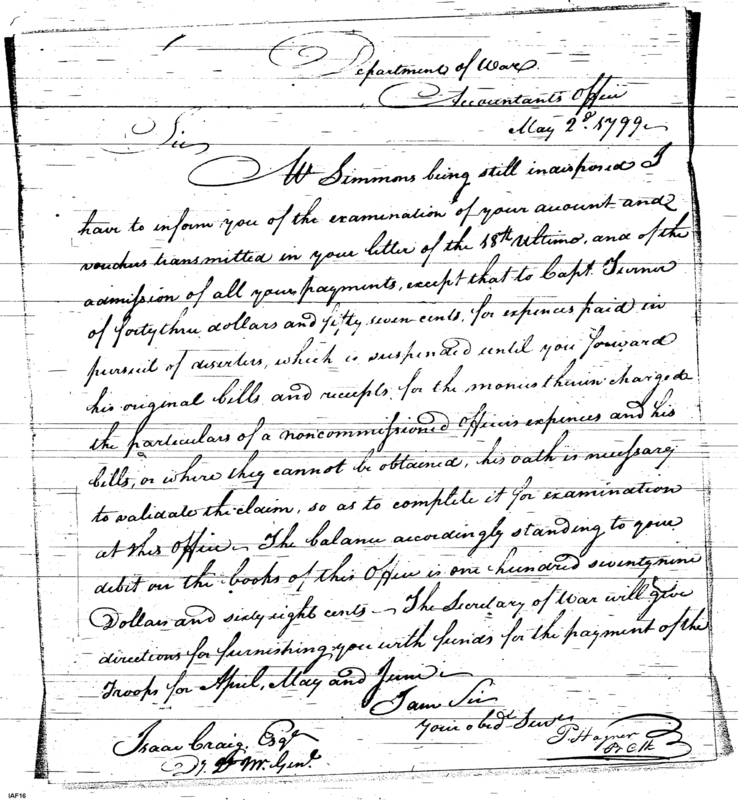 Department of War
Accountants Office
May 2d. 1799
Sir
Wm Simmons being still indisposed I
have to inform you of the examination of your account and
vouchers transmitted in your letter of the 18th Ultimo, and of the
admission of all your payments, except that to Capt. Turner
of forty three dollars and fifty seven cents, for expences paid in
pursuit of deserters, which is suspended until you forward
his original bills and receipts for the monies therein charged
the particulars of a noncommissioned officers expences and his
bills, or where they cannot be obtained, his oath is necessary
to validate the claim, so as to complete it for examination
at this Office. The balance accordingly standing to your
debit on the books of this Office is one hundred seventy nine
Dollars and sixty eight cents. The Secretary of War will give
directions for furnishing you with funds for the payment of the
Troops for April, May and June
I am Sir
Your obedt. Servt
P. Hagner
Pr Clk
Isaac Craig, Esqr
Dy. Q. M. Genl.
IAF16